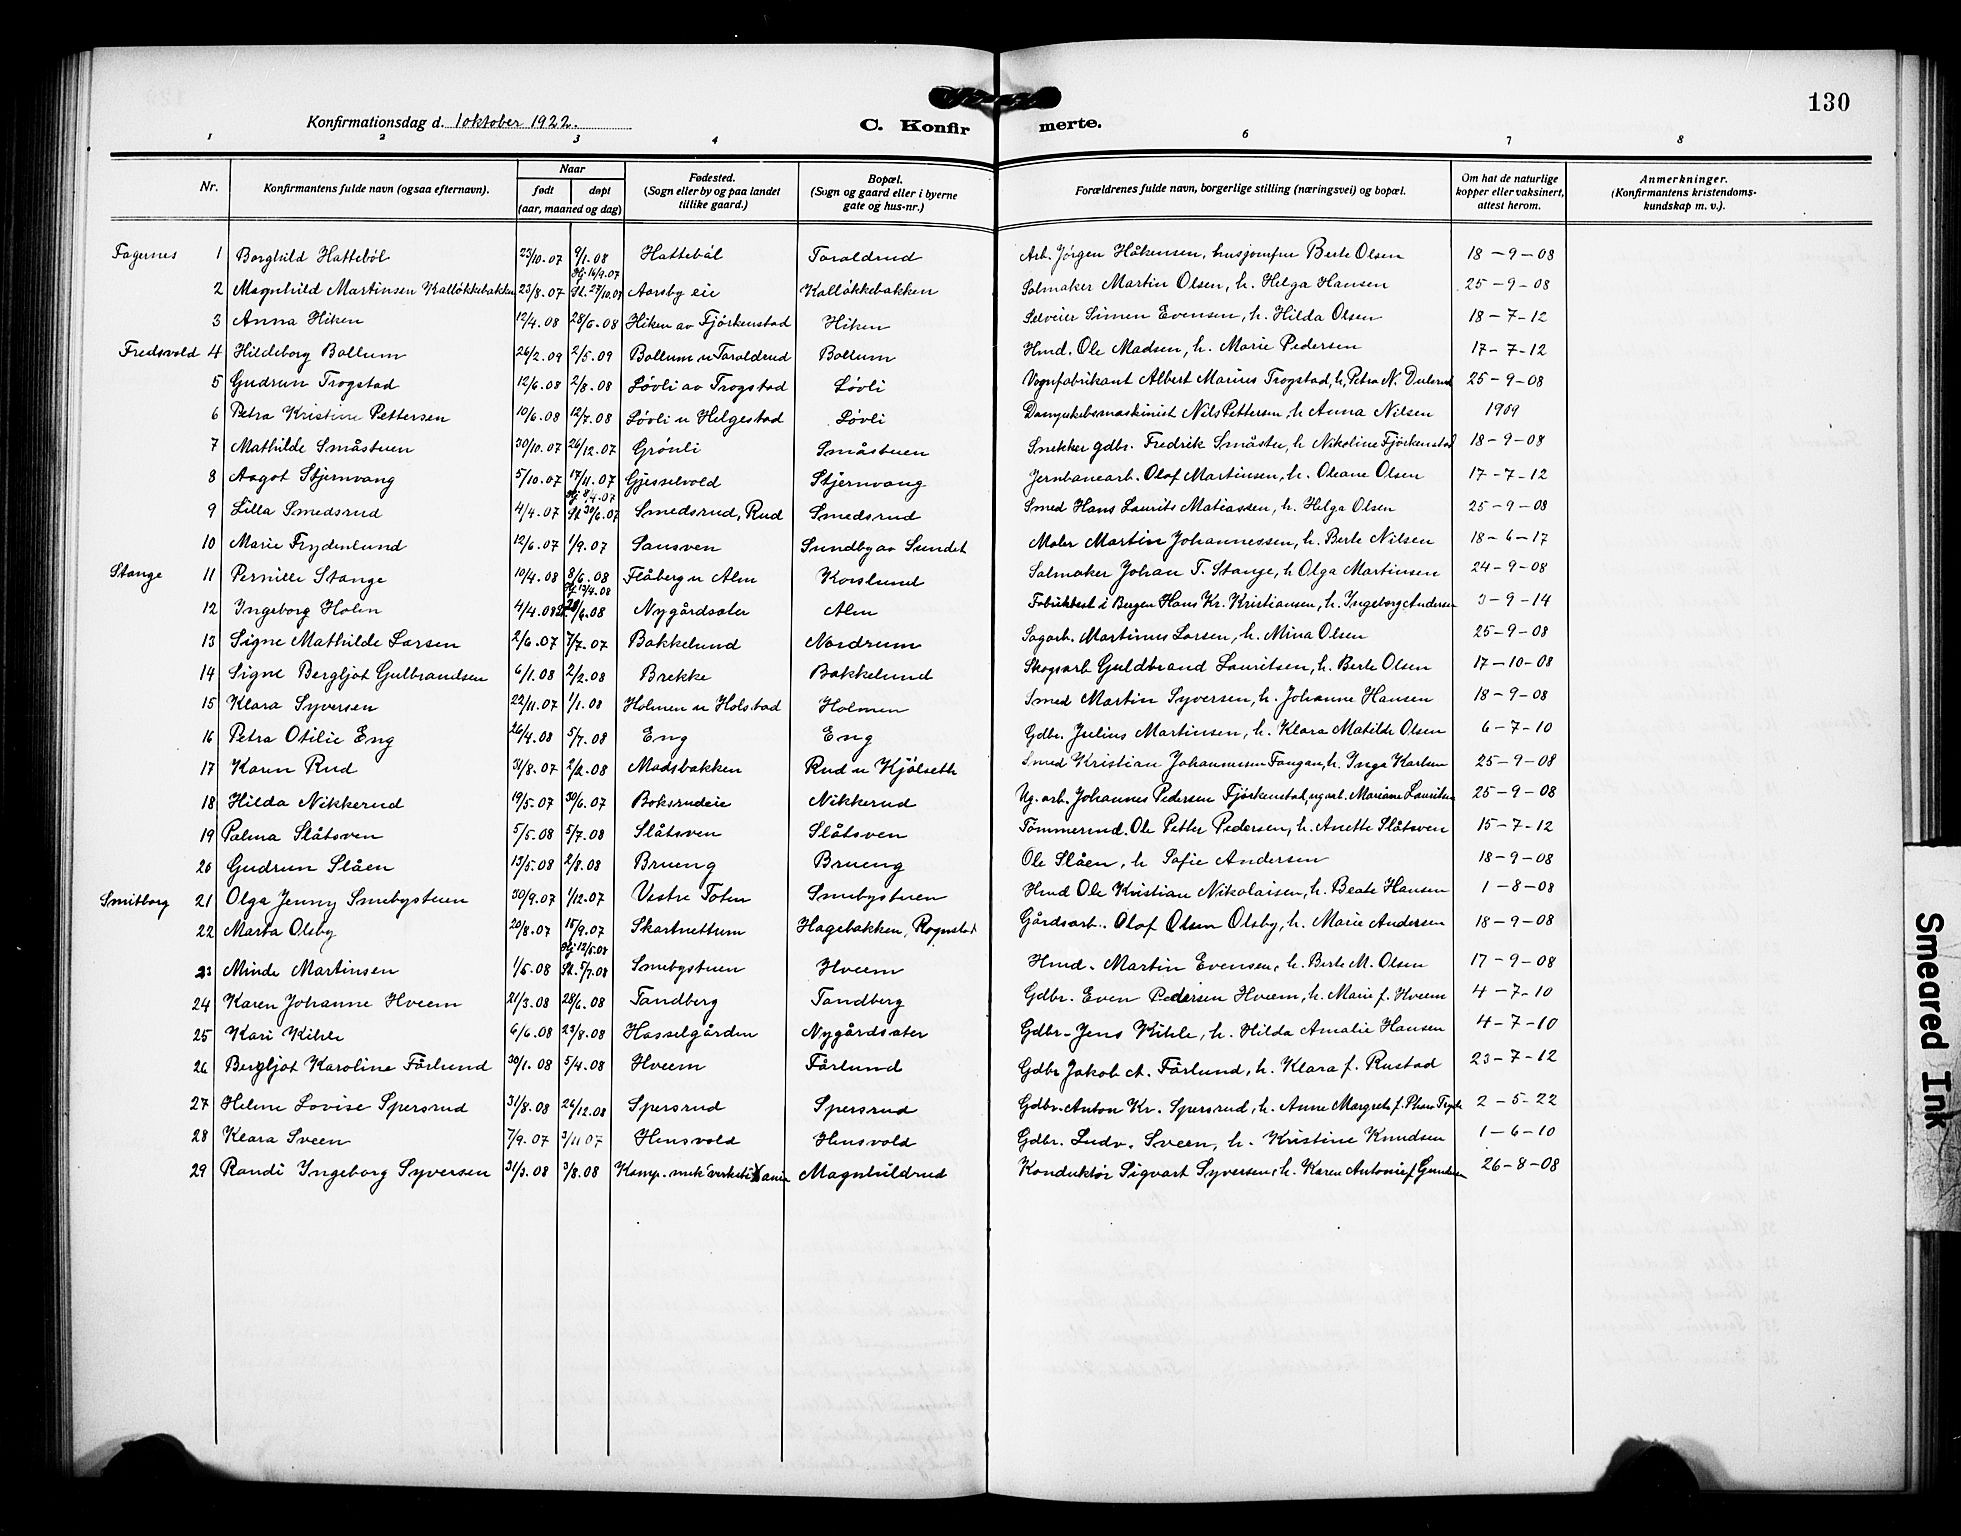 130
Konfirmationsdag d. 1 oktober 1922.
C. Konfir merte.
1 2 3 4 6 7 8
Nr. Konfirmantens fulde navn (ogsaa efternavn). Naar født døpt (aar, maaned og dag) Fødested. (Sogn eller by og paa landet tillike gaard.) Bopæl. (Sogn og gaard eller i byerne gate og hus-nr.) Forældrenes fulde navn, borgerlige stilling (næringsvei) og bopæl. Om hat de naturlige kopper eller vaksinert, attest herom. Anmerkninger. (Konfirmantens kristendomskundskap m. v.).
Fagernes 1 Borghild Hattebøl 23/10.07 9/1.08 Hattebøl Taraldrud Arb. Jørgen Håkensen, husjomfru Berte Olsen 18-9-08
2 Magnhild Martinsen Kalløkkebakken 23/8.07 Hj 16/9.07 St. 27/10.07 Aarsby eie Kalløkkebakken Salmaker Martin Olsen, h. Helga Hansen 25-9-08
3 Anna Hiken 12/4.08 28/6.08 Hiken av Fjørkenstad Hiken Selveier Simen Evensen, h. Hilda Olsen 18-7-12
Fredsvold 4 Hildeborg Bollum 26/2.09 2/5.09 Bollum u Taraldrud Bollum Hmd. Ole Madsen, h. Marie Pedersen 17-7-12
5 Gudrun Trogstad 12/6.08 2/8.08 Løvli av Trogstad Løvli Vognfabrikant Albert Marius Trogstad, h. Petra N. Dulsrud 25-9-08
6 Petra Kristine Pettersen 10/6.08 12/7.08 Løvli u Helgestad Løvli Dampskibsmaskinist Nils Pettersen, h Anna Nilsen 1909
7 Mathilde Småstuen 30/10.07 26/12.07 Grønli Småstuen Snekker gdbr. Fredrik Småstu, h Nikoline Fjørkenstad 18-9-08
8 Aagot Stjernvang 5/10.07 17/11.07 Gjesselvold Stjernvang Jernbanearb. Olaf Martinsen, h. Oleane Olsen 17-7-12
9 Lilla Smedsrud 4/4.07 Hj 8/4.07 St 30/6.07 Smedsrud, Rud Smedsrud Smed Hans Laurits Matiassen, h. Helga Olsen 25-9-08
10 Marie Frydenlund 12/6.07 1/9.07 Sansven Sundby av Sundet Maler Martin Johannessen, h. Berte Nilsen 18-6-17
Stange 11 Pernille Stange 10/4.08 8/6.08 Flåberg u Alm Korslund Salmaker Johan T. Stange, h Olga Martinsen 24-9-08
12 Ingeborg Holm 4/4.08 Hj 12/4.08 St 28/6.08 Nygårdsæter Alm i Bergen Hans Kr. Kristiansen, h. Ingeborg Andersen 3-9-14
13 Signe Mathilde Larsen 2/6.07 7/7.07 Bakkelund Nordrum Sagarb. Martinus Larsen, h. Mina Olsen 25-9-08
14 Signe Bergljot Gulbrandsen 6/1.08 2/2.08 Brekke Bakkelund Skogsarb Guldbrand Lauritsen, h. Berte Olsen 17-10-08
15 Klara Syversen 22/11.07 1/1.08 Holmen u Holstad Holmen Smed Martin Syversen, h. Johanne Hansen 18-9-08
16 Petra Otilie Eng 26/4.08 5/7.08 Eng Eng Gdbr. Julius Martinsen, h. Klara Matilde Olsen 6-7-10
17 Karen Rud 31/8.07 2/2.08 Madsbakken Rud u Kjølseth Smed Kristian Johannessen Faugan, h. Inga Karlsen 25-9-08
18 Hilda Nikkerud 19/5.07 30/6.07 Boksrudeie Nikkerud Ug. arb. Johannes Pedersen Fjørkenstad, ug arb. Mariane Lauritsen 25-9-08
19 Palma Slåtsven 5/5.08 5/7.08 Slåtsven Slåtsven Tømmermd. Ole Petter Pedersen, h. Anette Slåtsven 15-7-12
20 Gudrun Slåen 13/5.08 2/8.08 Brueng Brueng Ole Slåen, h Sofie Andersen 18-9-08
Smitborg 21 Olga Jenny Smebystuen 30/9.07 1/12.07 Vestre Toten Smebystuen Hmd Ole Kristian Nikolaisen, h. Beate Hansen 1-8-08
22 Marta Olsby 20/8.07 15/9.07 Skartnettum Hagebakken, Rognstad Gårdsarb. Olaf Olsen Olsby, h. Marie Andersen 18-9-08
23 Minde Martinsen 1/5.08 Hj 12/5.08 St. 5/7.08 Smebystuen Hveem Hmd. Martin Evensen, h. Berte M. Olsen 17-9-08
24 Karen Johanne Hveem 21/3.08 28/6.08 Tandberg Tandberg Gdbr. Even Pedersen Hveem, h. Marie f. Hveem 4-7-10
25 Kari Kihle 6/6.08 23/8.08 Hasselgården Nygårdsæter Gdbr. Jens Kihle, h. Hilda Amalie Hansen 4-7-10
26 Bergljot Karoline Fårlund 30/1.08 5/4.08 Hveem Fårlund Gdbr Jakob A. Fårlund, h. Klara f. Rustad 23-7-12
27 Helene Lovise Spersrud 31/8.08 26/12.08 Spersrud Spersrud Gdbr. Anton Kr. Spersrud, h. Anne Margrete f. 2-5-22
28 Klara Sveen 7/9.07 3/11 07 Hensvold Hensvold Gdbr. Ludv. Sveen, h. Kristine Knudsen 1-6-10
29 Randi Ingeborg Syversen 31/3.08 3/8.08 Kamp. mek verksted Kania Magnhildrud Konduktør Sigvart Syversen, h. Karen Antonie f Gundersen 26-8-08
Smeared Ink